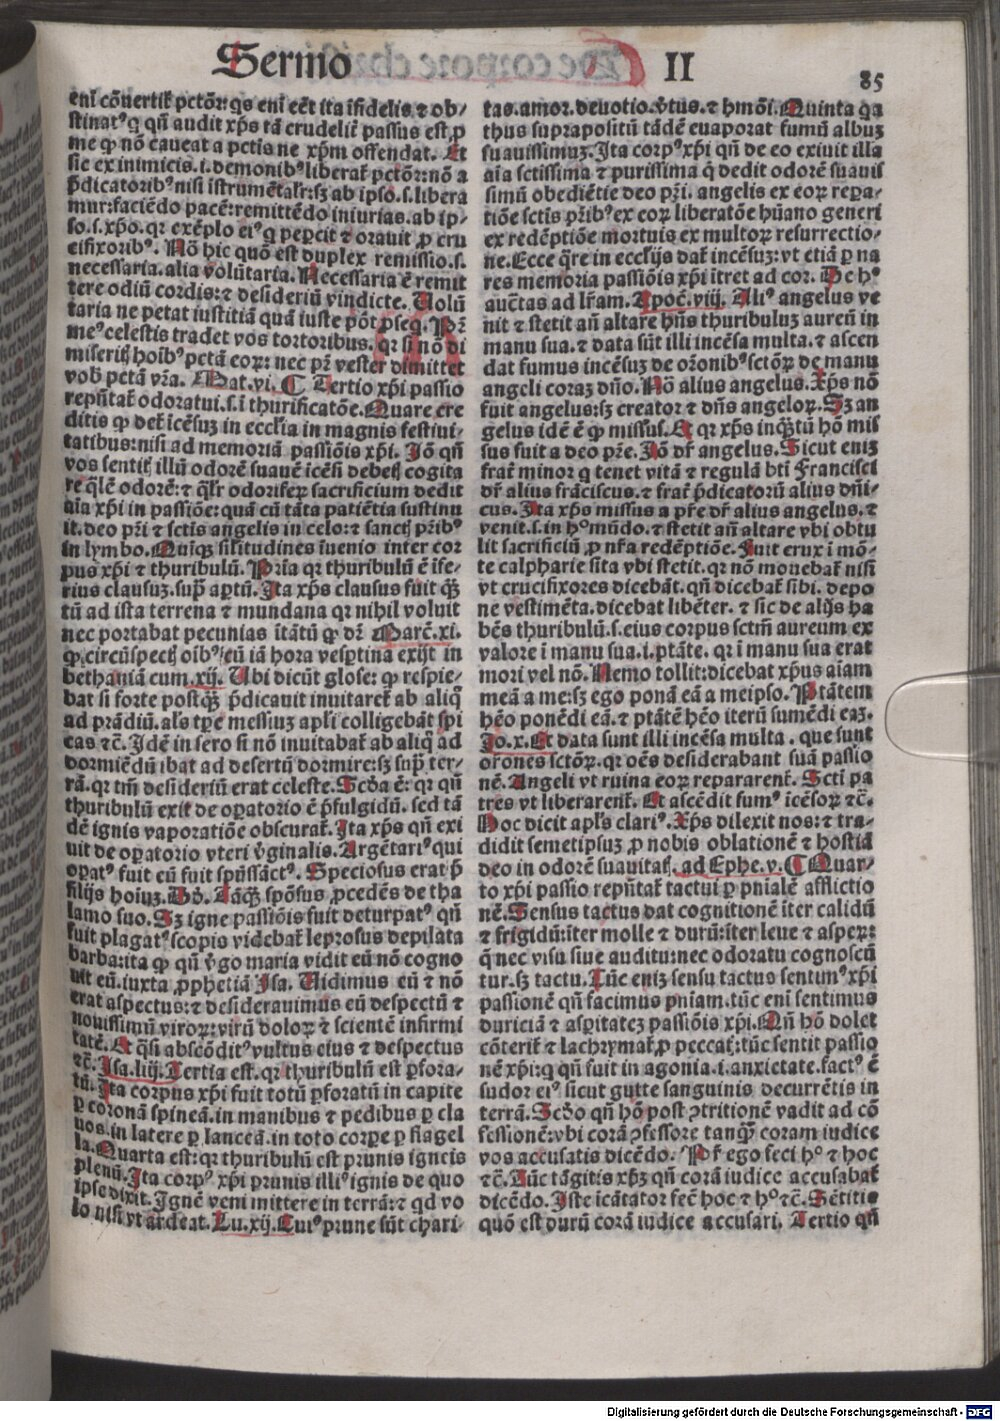 Sermo II
85
eni cõuertit̃ pctõꝛ: qs eni eēt ita ĩfidelis ⁊ ob-
stinatꝰ q qñ audit xp̃s tã crudelit̃ passus est ꝓ
me ꝙ nõ caueat a pctis ne xp̃m offendat. Et
sic ex inimicis .i. demonibꝰ liberat̃ pctõꝛ: nõ a
p̃dicatoribꝰ nisi ĩstrumẽtalr̃: sꝫ ab ipso .s. libera
mur: faciẽdo pacẽ: remittẽdo iniurias. ab ip-
so .s. xp̃o. qꝛ exẽplo eiꝰ q pepcit ⁊ orauit ꝓ cru
cifixoribꝰ. Nõ hic quõ est duplex remissio .s.
necessaria. alia volũtaria. Necessaria ẽ remit
tere odiũ cordis: ⁊ desideriũ vindicte. Uolũ
taria ne petat iustitiã quã iuste põt ꝓseq. Pr̃
meꝰ celestis tradet vos tortoribus. qꝛ si nõ di
miseritꝭ hoĩbꝰ petã eoꝝ: nec pr̃ vester dimittet
vob̃ petã vr̃a. Mat. vi. ¶ Tertio xp̃i passio
reputat̃ odoratui .s. ĩ thurificatõe. Quare cre
ditis ꝙ det̃ icẽsuꝫ in ecclĩa in magnis festiui-
tatibus: nisi ad memoriã passiõis xp̃i. Jõ qñ
vos sentitꝭ illũ odorẽ suauẽ icẽsi debetꝭ cogita
re q̃lẽ odorẽ: ⁊ q̃lr̃ odoriferꝝ sacrificium dedit
aĩa xp̃i in passiõe: quã cũ tãta patiẽtia sustinu
it. deo pr̃i ⁊ sctis angelis in celo: ⁊ sanctꝭ pr̃ibꝰ
in lymbo. Quĩqꝫ sil̃itudines ĩuenio inter cor
pus xp̃i ⁊ thuribulũ. Prĩa qꝛ thuribulũ ẽ ĩfe-
rius clausuꝫ. sup̃ aptũ. Ita xp̃s clausus fuit q̃ꝫ
tũ ad ista terrena ⁊ mundana qꝛ nihil voluit
nec portabat pecunias ĩtãtũ ꝙ dr̃. Marc̃. xi.
ꝙ circũspectꝭ oĩbꝰ cũ iã hora vesptina exijt in
bethaniã cum .xij. Ubi dicũt glose: ꝙ respicie-
bat si forte postq̃ꝫ p̃dicauit inuitaret̃ ab aliq̃
ad prãdiũ. al̃s tp̃e messiuꝫ apl̃i colligebãt spi
cas ⁊c̃. Idẽ in sero si nõ inuitabat̃ ab aliq̃ ad
dormiẽdũ ibat ad desertũ dormire: sꝫ sup̃ ter-
rã. qꝛ tm̃ desideriũ erat celeste. Scd̃a ẽ: qꝛ qñ
thuribulũ exit̃ de opatorio ẽ p̃fulgidũ. sed tã
dẽ ignis vaporatiõe obscurat̃. Ita xp̃s qñ exi
uit de opatorio vteri v̓ginalis. Argẽtariꝰ qui
opatꝰ fuit eũ fuit sp̃ũssãctꝰ. Speciosus erat p̃
filijs hoĩuꝫ. Dd̃. Tãq̃ꝫ spõsus ꝓcedẽs de tha
lamo suo. Iꝫ igne passiõis fuit deturpatꝰ qñ
fuit plagatꝰ scopis videbat̃ leprosus depilata
barba: ita ꝙ qñ v̓go maria vidit eũ nõ cogno
uit eũ. iuxta ꝓphetiã Isa. Uidimus eũ ⁊ nõ
erat aspectus: ⁊ desiderauimus eũ despectũ ⁊
nouissimũ viroꝝ: virũ doloꝝ ⁊ scientẽ infirmi
tatẽ. Et q̃si abscõditꝰ vultus eius ⁊ despectus
⁊c̃. Isa. liij. Tertia est. qꝛ thuribulũ est ꝑfora-
tũ. Ita corpus xp̃i fuit totũ ꝑforatũ in capite
ꝑ coronã spineã. in manibus ⁊ pedibus ꝑ cla
uos. in latere ꝑ lanceã. in toto corpe ꝑ flagel
la. Quarta est: qꝛ thuribulũ est prunis igneis
plenũ. Ita corpꝰ xp̃i prunis illiꝰ ignis de quo
ipse dixit. Ignẽ veni mittere in terrã: ⁊ qd vo
lo nisi vt ardeat. Lu. xij. Cuiꝰ prune sũt chari-
tas. amor. deuotio. v̓tus. ⁊ hmõi. Quinta qa
thus suprapositũ tãdẽ euaporat fumũ albuꝫ
suauissimuꝫ. Ita corpꝰ xp̃i qñ de eo exiuit illa
aĩa sctissima ⁊ purissima q̃ dedit odorẽ suauis
simũ obediẽtie deo pr̃i. angelis ex eoꝝ repa-
tiõe sctis pr̃ibꝰ ex eoꝝ liberatõe hũano generi
ex redẽptiõe mortuis ex multoꝝ resurrectio-
ne. Ecce q̃re in ecclijs dat̃ incẽsuꝫ: vt etiã ꝑ na
res memoria passiõis xp̃i ĩtret ad cor. De hꝰ
auctas ad lr̃am. Apoc̃. viij. Aliꝰ angelus ve
nit ⁊ stetit añ altare hñs thuribuluꝫ aureũ in
manu sua. ⁊ data sũt illi incẽsa multa. ⁊ ascen
dat fumus incẽsuꝫ de orõnibꝰ sctõꝝ de manu
angeli coraꝫ dño. Nõ alius angelus. Xp̃s nõ
fuit angelus: sꝫ creator ⁊ dñs angeloꝝ. Sꝫ an
gelus idẽ ẽ ꝙ missus. Et qꝛ xp̃s inq̃ꝫtũ hõ mis
sus fuit a deo pr̃e. Jõ dr̃ angelus. Sicut eniꝫ
frat̃ minor q tenet vitã ⁊ regulã bt̃i Francisci
dr̃ alius frãciscus. ⁊ frat̃ p̃dicatorũ alius dñi-
cus. Ita xp̃s missus a pr̃e dr̃ alius angelus. ⁊
venit .s. in hꝰ mũdo. ⁊ stetit añ altare vbi obtu
lit sacrificiũ ꝓ nr̃a redẽptiõe. Fuit crux ĩ mõ-
te calpharie sita vbi stetit. qꝛ nõ mouebat̃ nisi
vt crucifixores dicebãt. qñ dicebat̃ sibi. depo
ne vestimẽta. dicebat libẽter. ⁊ sic de alijs ha
bẽs thuribulũ .s. eius corpus sctm̃ aureum ex
valore ĩ manu sua .i. ptãte. qꝛ ĩ manu sua erat
mori vel nõ. Nemo tollit: dicebat xp̃us aĩam
meã a me: sꝫ ego ponã eã a meipso. Ptãtem
hẽo ponẽdi eã. ⁊ ptãtẽ hẽo iterũ sumẽdi eaꝫ.
Jo. x. Et data sunt illi incẽsa multa. que sunt
orõnes sctõꝝ. qꝛ oẽs desiderabant suã passio
nẽ. Angeli vt ruina eoꝝ repararent̃. Scti pa
tres vt liberarent̃. Et ascẽdit fumꝰ icẽsoꝝ ⁊c̃.
Hoc dicit apl̃s clariꝰ. Xp̃s dilexit nos: ⁊ tra-
didit semetipsuꝫ ꝓ nobis oblationẽ ⁊ hostiã
deo in odorẽ suauitatꝭ. ad Ephe. v. ¶ Quar-
to xp̃i passio reputat̃ tactui ꝑ pnialẽ afflictio
nẽ. Sensus tactus dat cognitionẽ ĩter calidũ
⁊ frigidũ: ĩter molle ⁊ durũ: ĩter leue ⁊ asperꝝ:
q̃ nec visu siue auditu: nec odoratu cognoscũ
tur. sꝫ tactu. Tũc eniꝫ sensu tactus sentimꝰ xp̃i
passionẽ qñ facimus pniam. tũc eni sentimus
duriciã ⁊ aspitateꝫ passiõis xp̃i. Qñ hõ dolet
cõterit̃ ⁊ lachrymat̃ ꝓ peccatꝭ: tũc sentit passio
nẽ xp̃i: q̃ qñ fuit in agonia .i. anxietate. factꝰ ẽ
sudor eiꝰ sicut gutte sanguinis decurrẽtis in
terrã. Scd̃o qñ hõ post ꝯtritionẽ vadit ad cõ
fessionẽ: vbi corã ꝯfessore tanq̃ꝫ coram iudice
vos accusatis dicẽdo. Pr̃ ego feci hꝰ ⁊ hoc
⁊c̃. Tũc tãgitis xp̃ꝫ qñ corã iudice accusabat̃
dicẽdo. Iste icãtator fec̃ hoc ⁊ hꝰ ⁊c̃. Sẽtitis
quõ est durũ corã iudice accusari. Tertio qñ
Digitalisierung gefördert durch die Deutsche Forschungsgemeinschaft - DFG